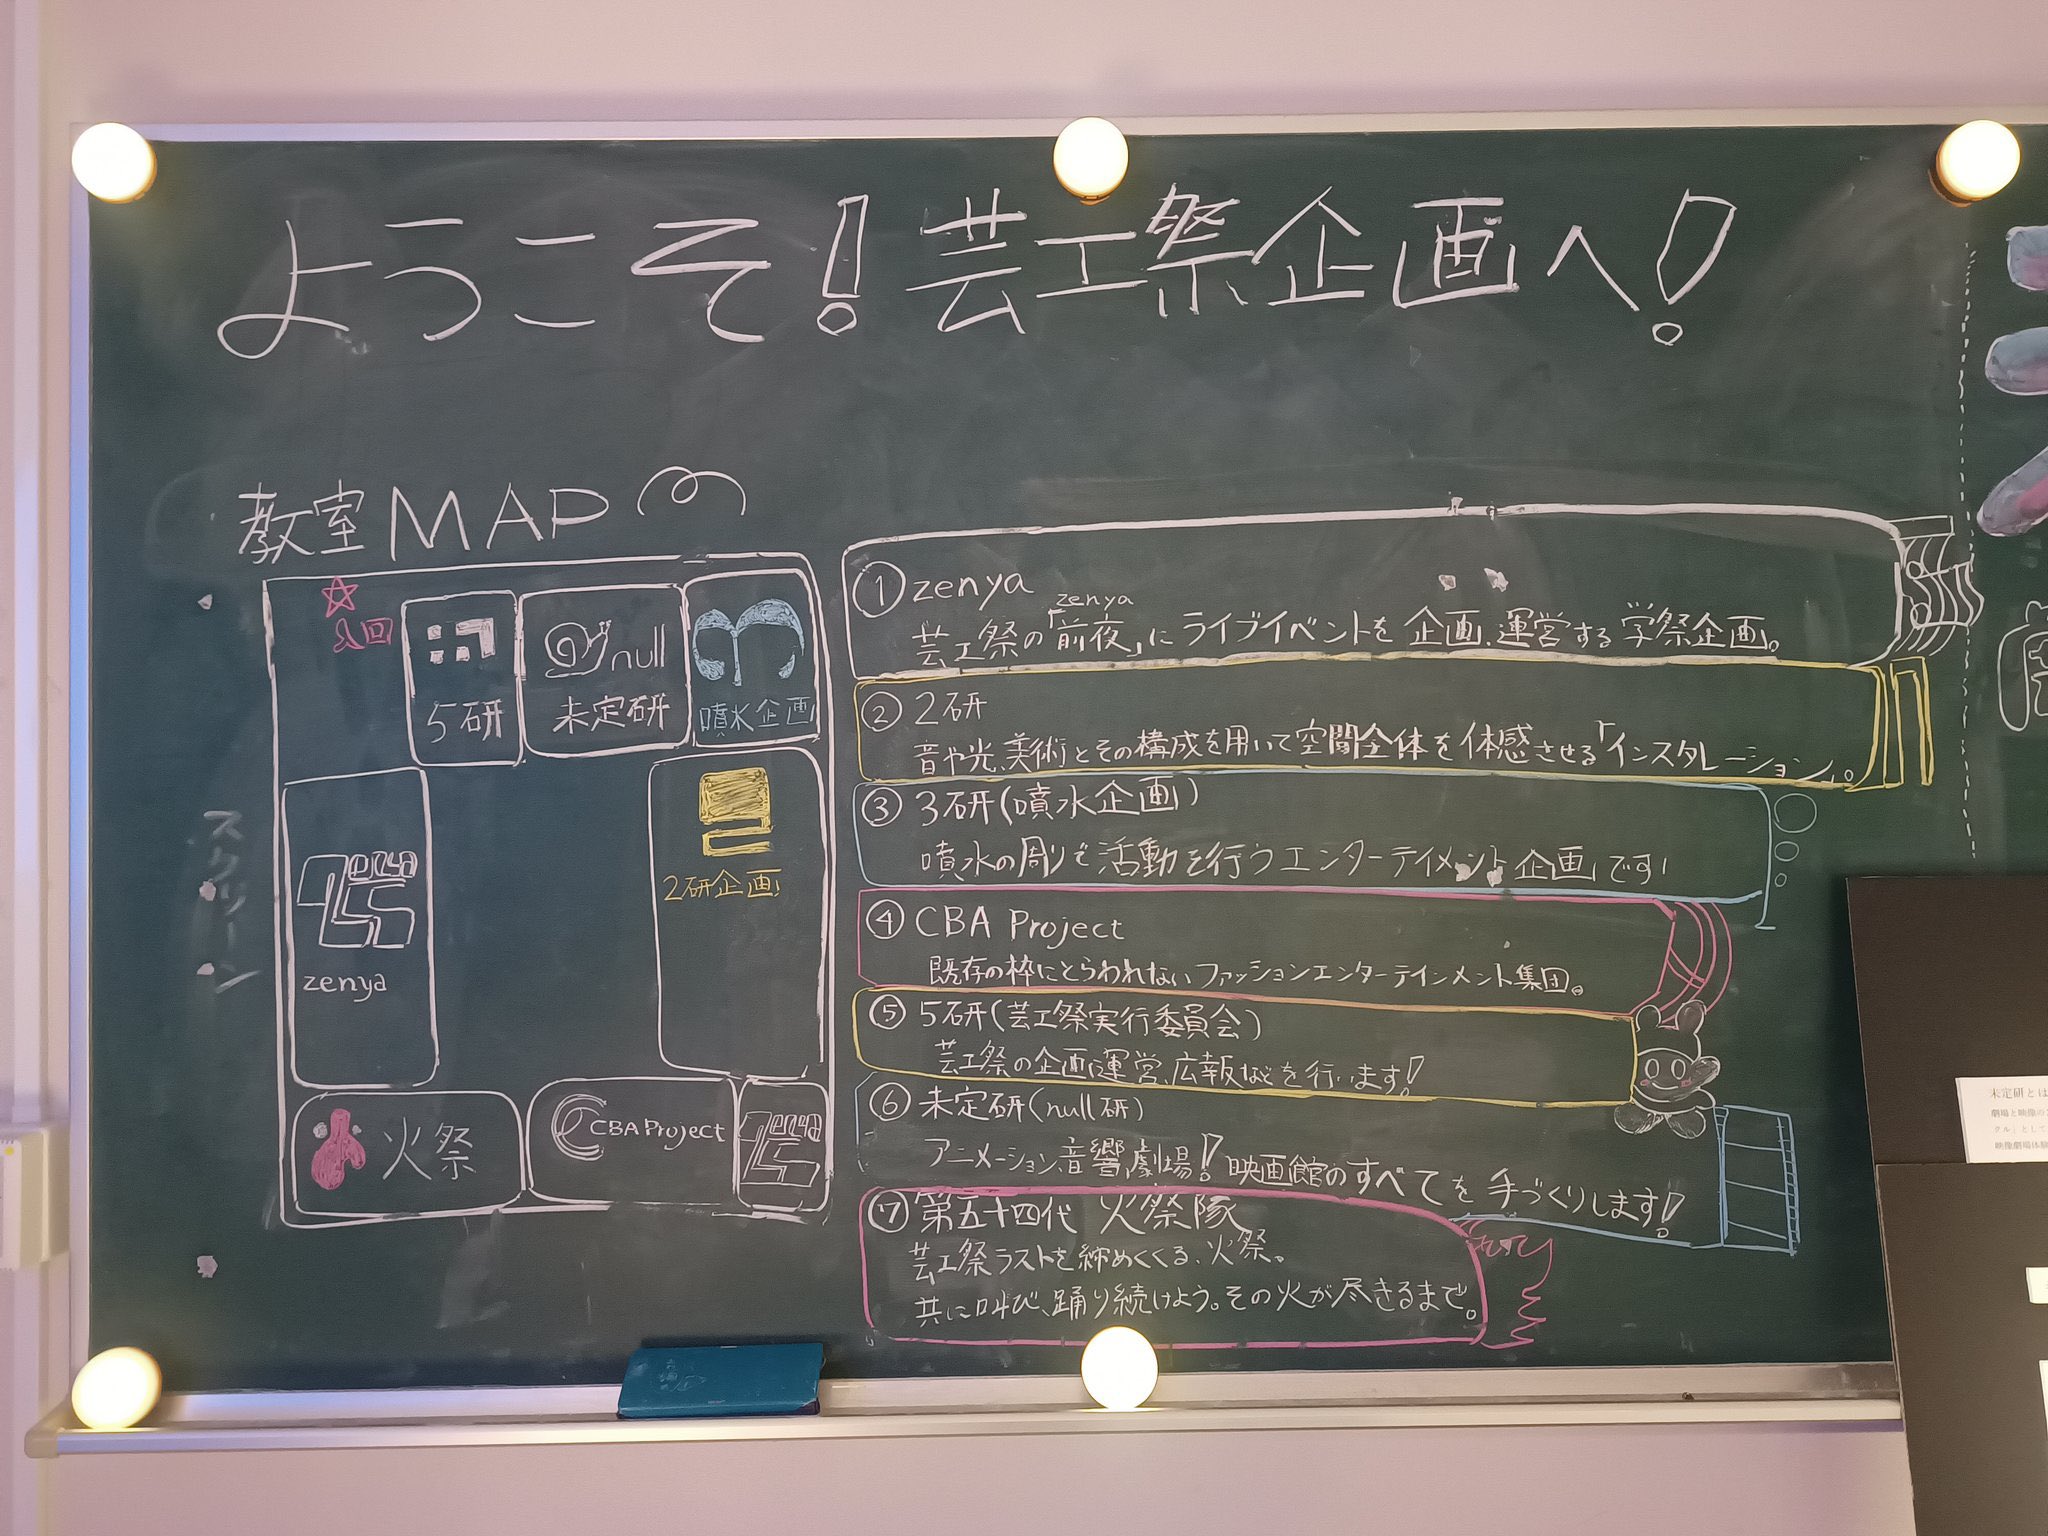 ようこそ!芸工祭企画へ!
教室MAP
入口
5研
null
未定研
噴水企画
スクリーン
zenya
zenya
2研企画
火祭
CBA Project
zenya
① zenya
zenya
芸工祭の「前夜」にライブイベントを企画、運営する学祭企画。
② 2研
音や光、美術とその構成を用いて空間全体を体感させる「インスタレーション」。
③ 3研(噴水企画)
噴水の周りで活動を行うエンターテイメント企画です!
④ CBA Project
既存の枠にとらわれないファッションエンターテインメント集団。
⑤ 5研(芸工祭実行委員会)
芸工祭の企画、運営、広報などを行います!
⑥ 未定研(null研)
アニメーション、音響、劇場!映画館のすべてを手づくりします!
⑦ 第五十四代 火祭隊
芸工祭ラストを締めくくる、火祭。
共に叫び、踊り続けよう。その火が尽きるまで。
未定研とは
劇場と映像の
クル」として
映像劇場体験